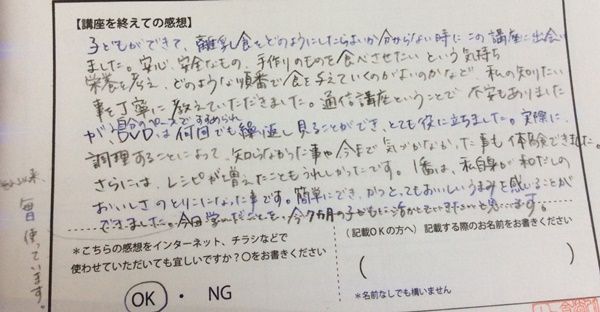 【講座を終えての感想】
子どもができて、離乳食をどのようにしたらよいか分からない時にこの講座に出会い
ました。安心、安全なもの、手作りのものを食べさせたいという気持ち
栄養を考え、どのような順番で食を与えていくのがよいのかなど、私の知りたい
事を丁寧に教えていただきました。通信講座ということで不安もありました
が、自分のペースですすめられ
DVDは何回でも繰り返し見ることができ、とても役に立ちました。実際に
調理することによって、知らなかった事や今まで気づかなかった事も体験できました。
さらには、レシピが増えたこともうれしかったです。1番は、私自身が和だしの
おいしさのとりこになった事です。簡単にでき、かつとってもおいしいうまみを感じることが
できました。今回学んだことを、今7カ月の子どもに活かしていきたいと思います。
毎日使っています。
*こちらの感想をインターネット、チラシなどで
使わせていただいても宜しいですか？○をお書きください
OK ・ NG
(記載OKの方へ) 記載する際のお名前をお書きください
( )
*名前なしでも構いません